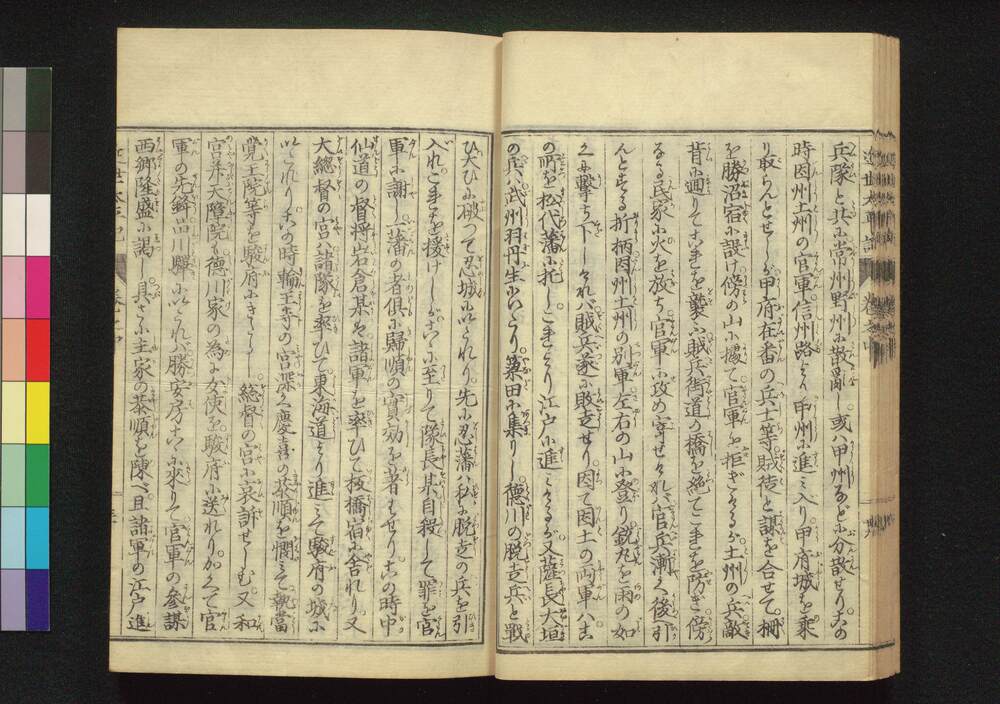 兵隊と共に常州野州に散亂し或ハ甲州などに分散せり又の
時因州土州の官軍信州路より甲州に進ミ入り甲府城を乗
り取らんとせしが甲府在番の兵士等賊徒と謀を合せて柵
を勝沼宿に設け傍の山に據て官軍を拒ぎけるが土州の兵敵
の背に廻りて
る民家に火を放ち官軍に攻め寄せけれバ官兵漸く後ろに引
んとする折柄因州土州の別軍左右の山に登り銃丸を雨の如
くに撃ち下しけれバ賊兵遂に敗走せり因て因土の両軍ハ
の所を松代藩に托しこれより江戸に進ミけるが又薩長大垣
の兵武州羽丹生にいたり簗田に集りし德川の脱走兵と戰
ひ大ひに破つて忍城に以たれり先に忍藩ハ私に脱走の兵を引
入れこれを援けしがこゝに至りて隊長某自殺して罪を官
軍に謝し藩の者俱に歸順の實効を著もせりこの時中
仙道の督將岩倉某ハ諸軍を率ひて板橋宿に舎れり又
大總督の宮ハ諸隊を率ひて東海道より進ミて駿府の城に
以たれりこの時輪王寺の宮深く慶喜の恭順を憫ミて執當
覺王院等を駿府に
總督の宮に哀訴せしむ又和
宮并天障院も德川家の為に女使を駿府に送れりかくて官
軍の先鋒品川驛に以たれバ勝安房こゝに來りて官軍の參謀
西郷隆盛に謁し具さに主家の恭順を陳べ且諸軍の江戸進